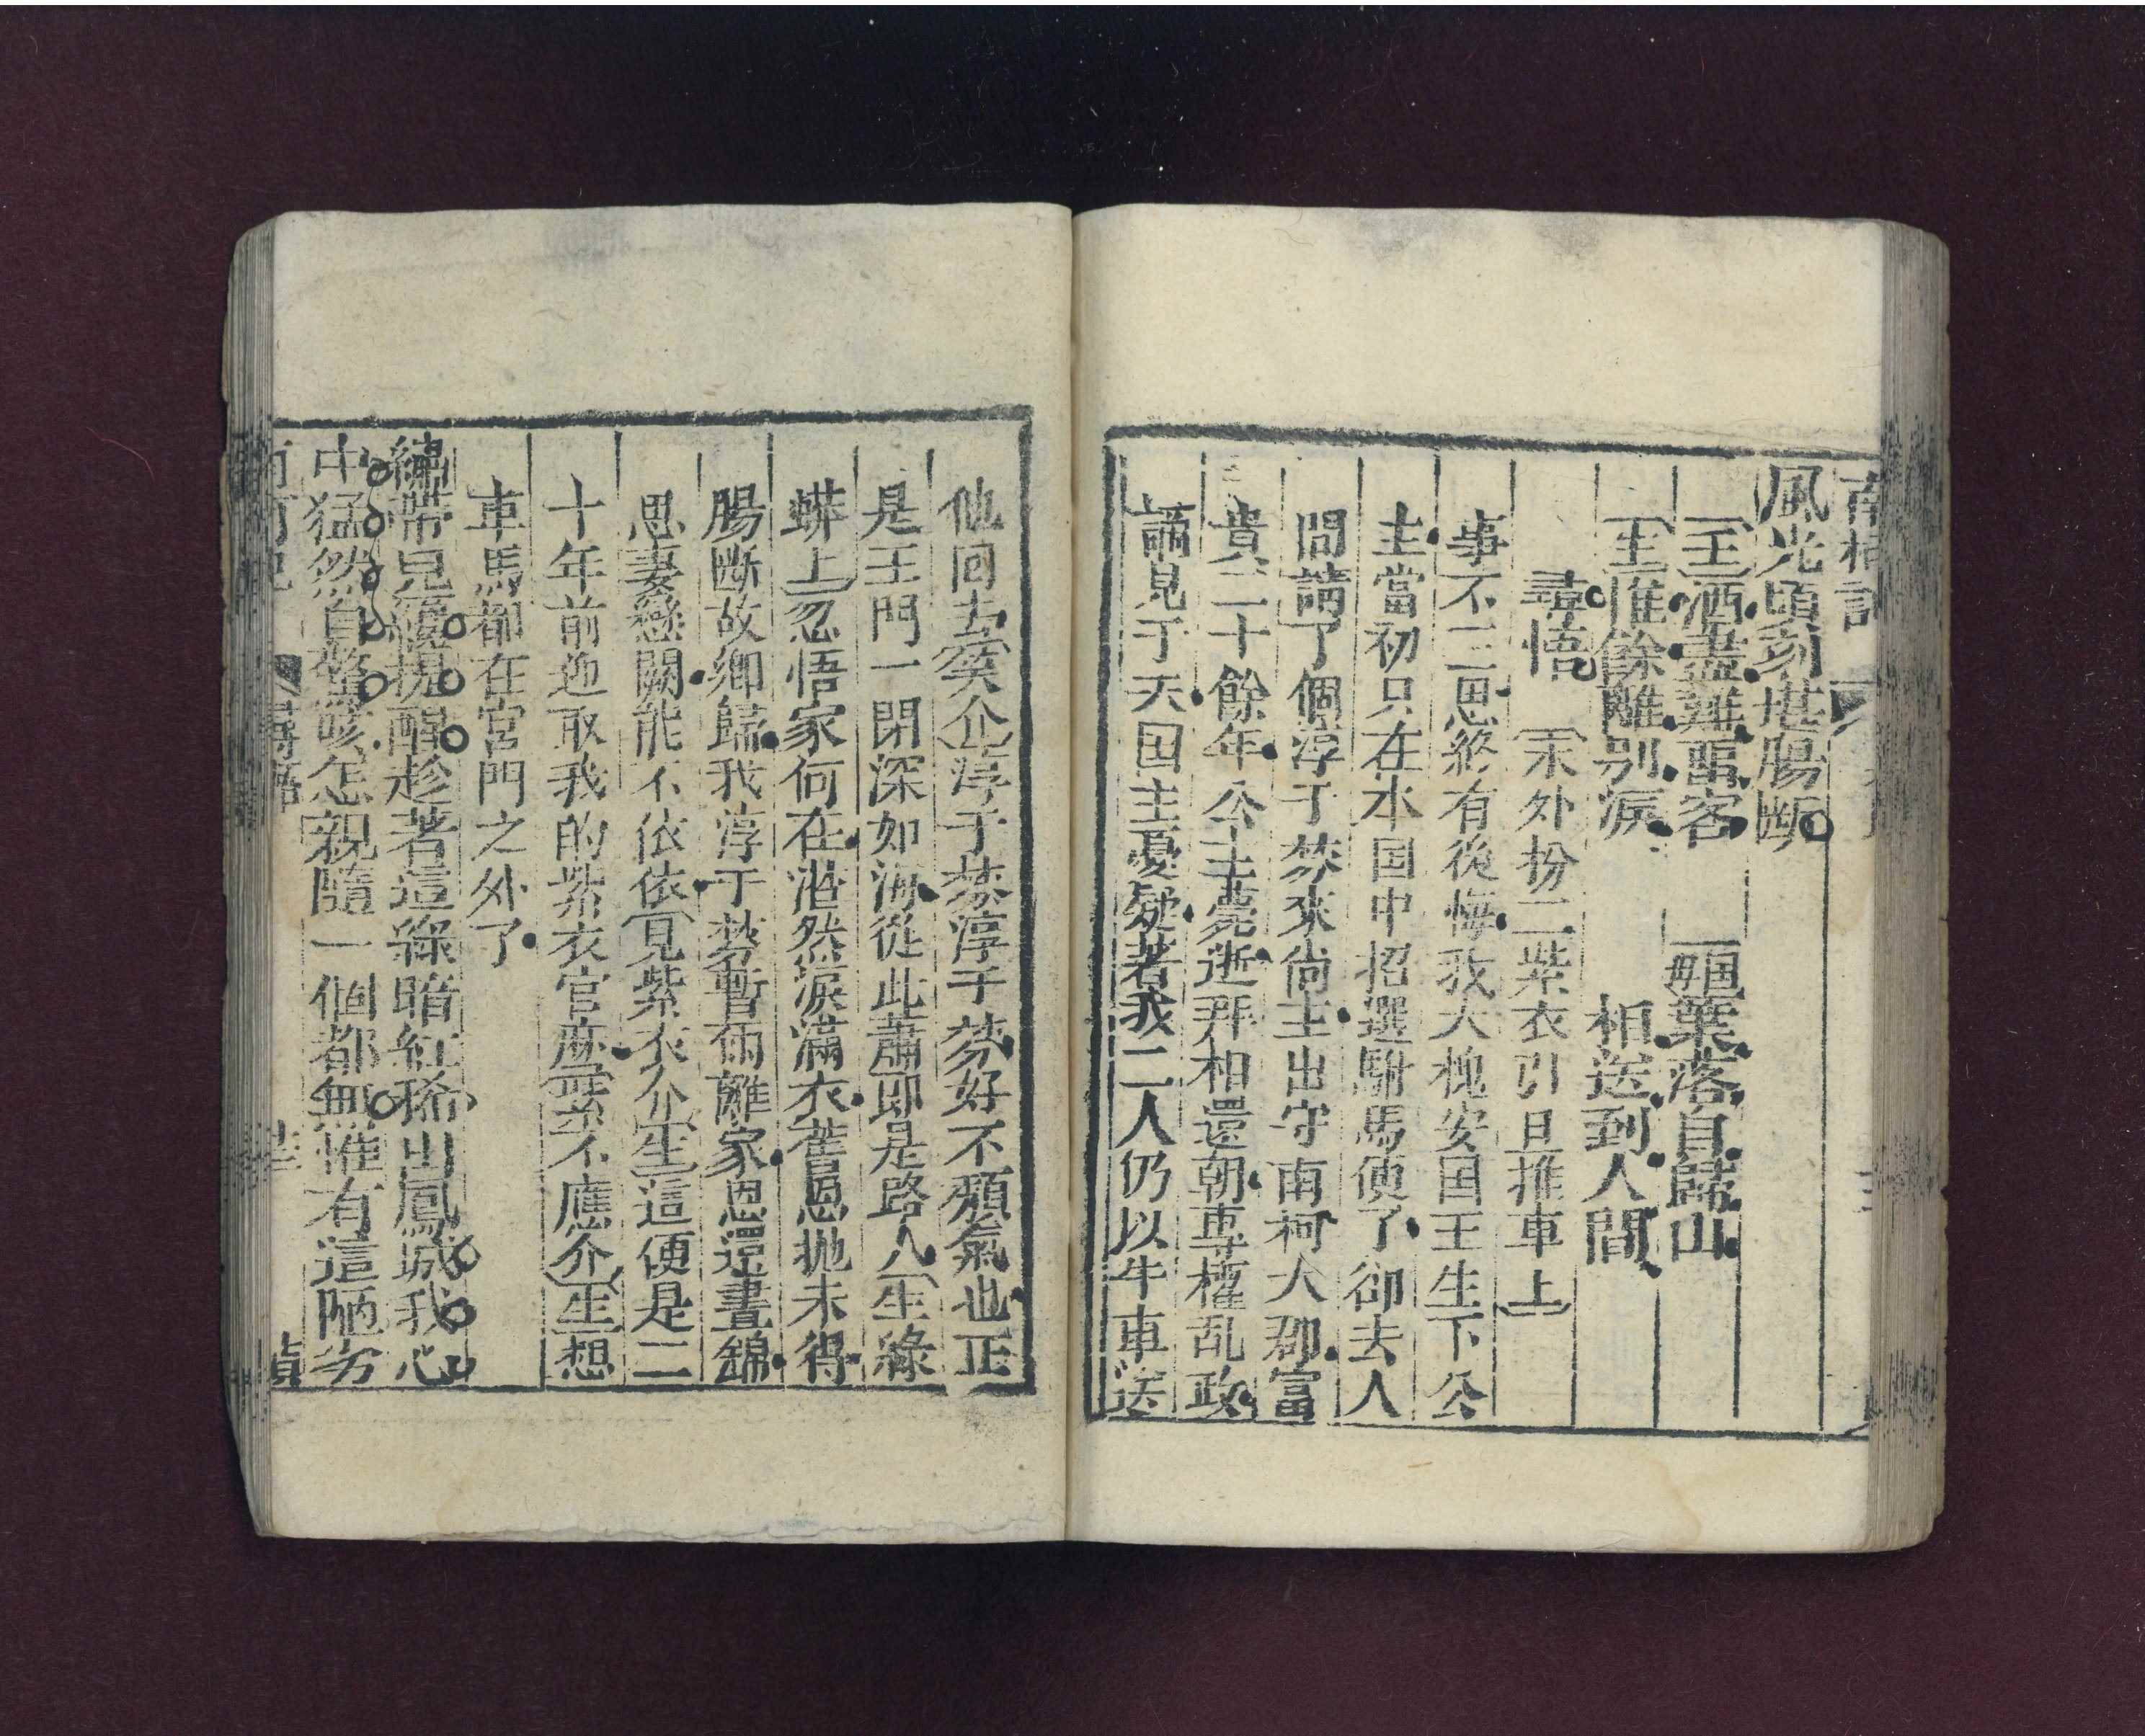 南柯記
風光頃刻堪腸斷
王洒盡難留客 国母葉落自歸山
王惟餘離别淚 相送到人間
尋悟 末外扮二紫衣引旦推車上
事不三思終有後悔我大槐安国王生下公
主當初只在本国中招選駙馬便了卻去人
間請了個淳于棼來尚主出守南柯大郡富
貴二十餘年公主薨逝拜相還朝專權乱政
謫見于天国主憂疑著我二人仍以牛車送
他回去笑介淳于棼淳于棼好不頽氣也正
是王門一閉深如海從此蕭郎是路人生綠
蟒上忽悟家何在潸然淚滿衣舊恩抛未得
腸斷故卿歸我淳于棼暫而離家恩還晝錦
思妻戀闕能不依依見紫衣介生這便是二
十年前迎取我的紫衣官麽紫不應介生想
車馬都在宮門之外了
繡帶兒纔提醒趁著這綠暗紅稀出鳳城我心
中猛然自驚咳怎親隨一個都無惟有這陋劣
南柯記 尋悟